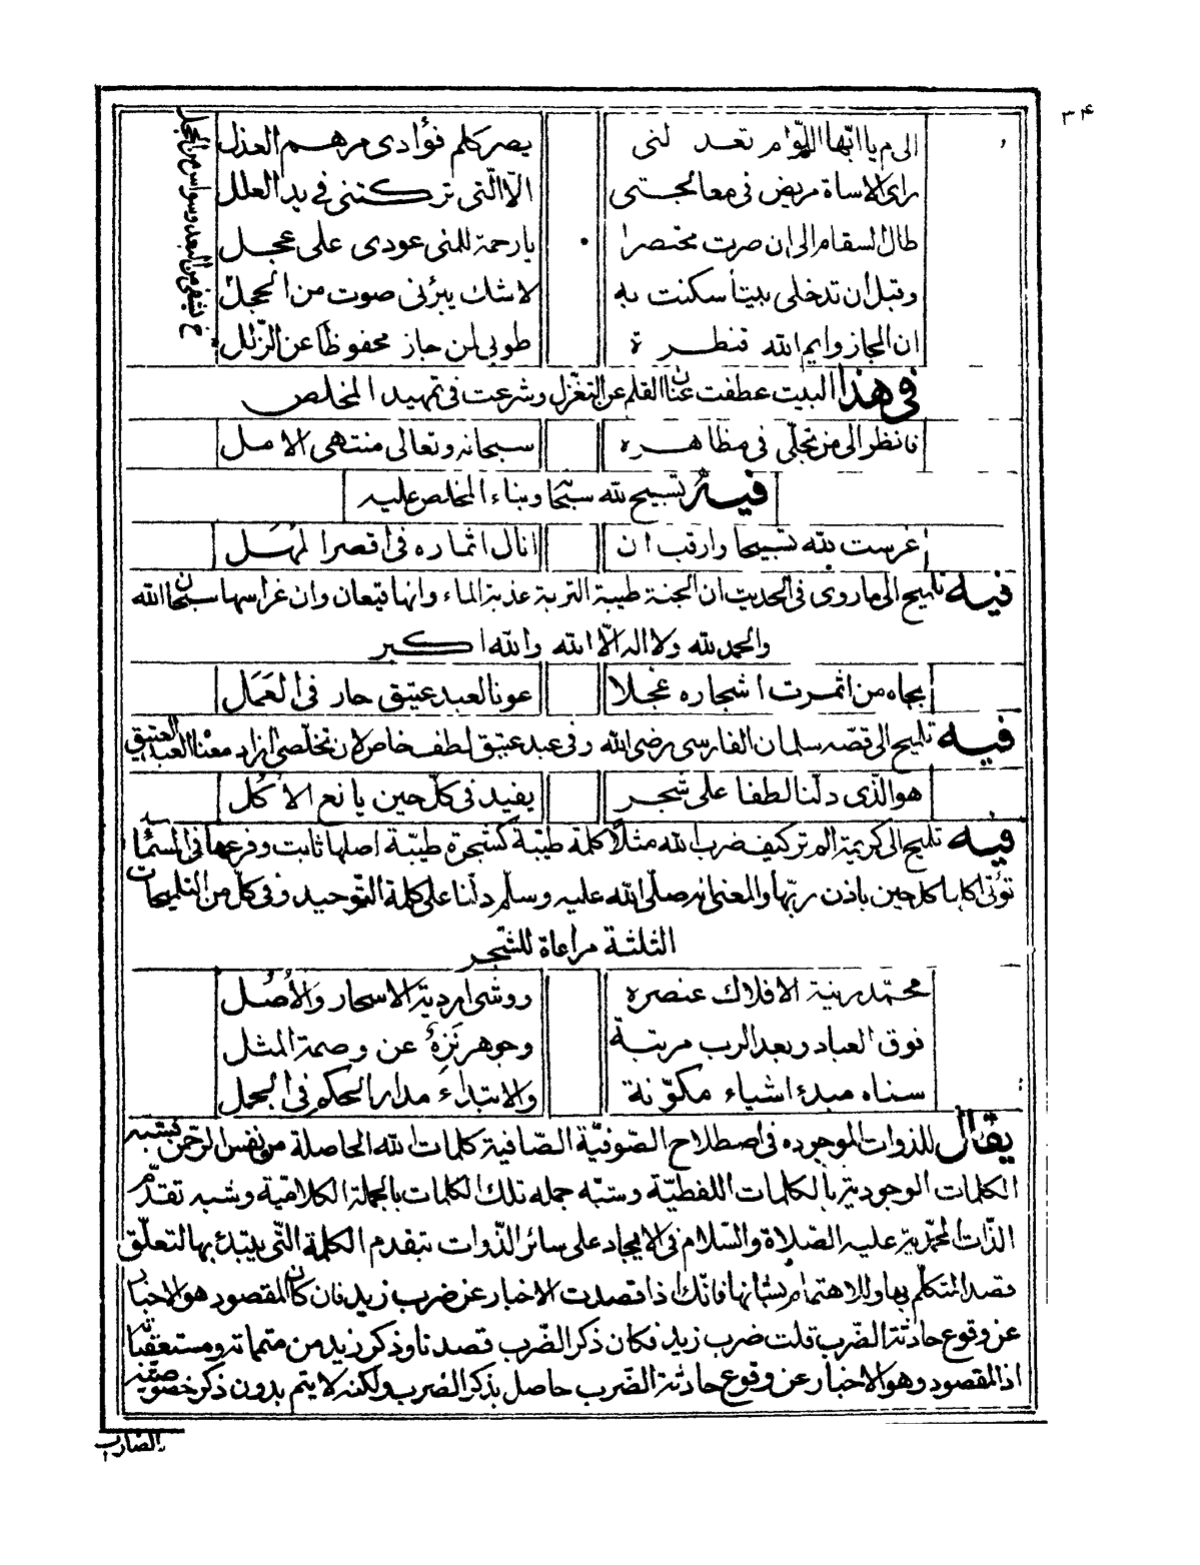 ٣۴
الى م يا ايّها اللّوام تعد لنى يصر كلم فؤادى مرهم العذل
راى الاساة مريض فى معالجتى الّا الّتى تركتنى فى يد العلل
طال السقام الى ان صرت مختصرا يا رحمة للمنى عودى على عجل
وقبل ان تدخلى بيتا سكنت به لا شك يبرئنى صوت من الحجل
ان المجاز وايم الله قنطرة طوبى لمن جاز محفوظا عن الزّلل
خ نشفى من البعد وسواس من الحجل
فى هذا البيت عطفت عنان القلم عن التغزّل وشرعت فى تمهيد المخلص
فانظر الى من تجلّى فى مظاهره سبحانه وتعالى منتهى الامل
فيه تسبيح لله سبحا وبناء المخلص عليه
غرست لله تسبيحا وارقب ان انال اثماره فى اقصر المهل
فيه تلميح الى ما روى فى الحديث ان الجنة طيبة التربة عذبة الماء وانها قيعان وان غراسها سبحان الله
والحمد لله ولا اله الّا الله والله اكبر
بجاه من اثمرت اشجاره عجلا عونا لعبد عتيق حار فى العمل
فيه تلميح الى قصه سلمان الفارسى رضى الله وفى عبد عتيق لطف خاص لان تخلّصى ازاد معناا العبد العتيق
هو الّذى دلّنا لطفا على شجر يفيد فى كلّ حين يانع الاكل
فيه تلميح الى كريمة الم تر كيف ضرب الله مثلا كلمة طيّبة كشجرة طيّبة اصلها ثابت وفرعها فى السّماء
تؤتى اكلها كل حين باذن ربّها والمعنى انه صلّى الله عليه وسلّم دلّنا على كلمة التّوحيد وفى كلّ من التلميحات
الثلثة مراعاة للشّجر
محمّد زينة الافلاك عنصره روشى اردية الاسحار والاصل
فوق العباد وبعد الرب مرتبة وجوهر نزه عن وصمة المثل
سناه مبدء اشياء مكوّنة والابتداء مدار الحكم فى الجمل
يقال للذوات الموجوده فى اصطلاح الصّوفيّة الصّافية كلمات الله الحاصلة من نفس الرّحمن فشبه
الكلمات الوجودية بالكلمات اللفظيّة وشبّه جمله تلك الكلمات بالجملة الكلاميّة وشبه تقدّم
الذّات المحمّدية عليه الصّلاة والسّلام فى الايجاد على سائر الذّوات بتقدم الكلمة الّتى يبتدء بها لتعلّق
قصد المتكلّم بها وللاهتمام بشانها فانّك اذا قصدت الاخبار عن ضرب زيد فان كان المقصود هو الاخبار
عن وقوع حادثة الضّرب قلت ضرب زيد فكان ذكر الضّرب قصدنا وذكر زيد من متماته ومستعقباته
اذ المقصود وهو الاخبار عن وقوع حادثة الضّرب حاصل بذكر الضرب ولكنه لا يتم بدون ذكر خصوصيّة
الضارب